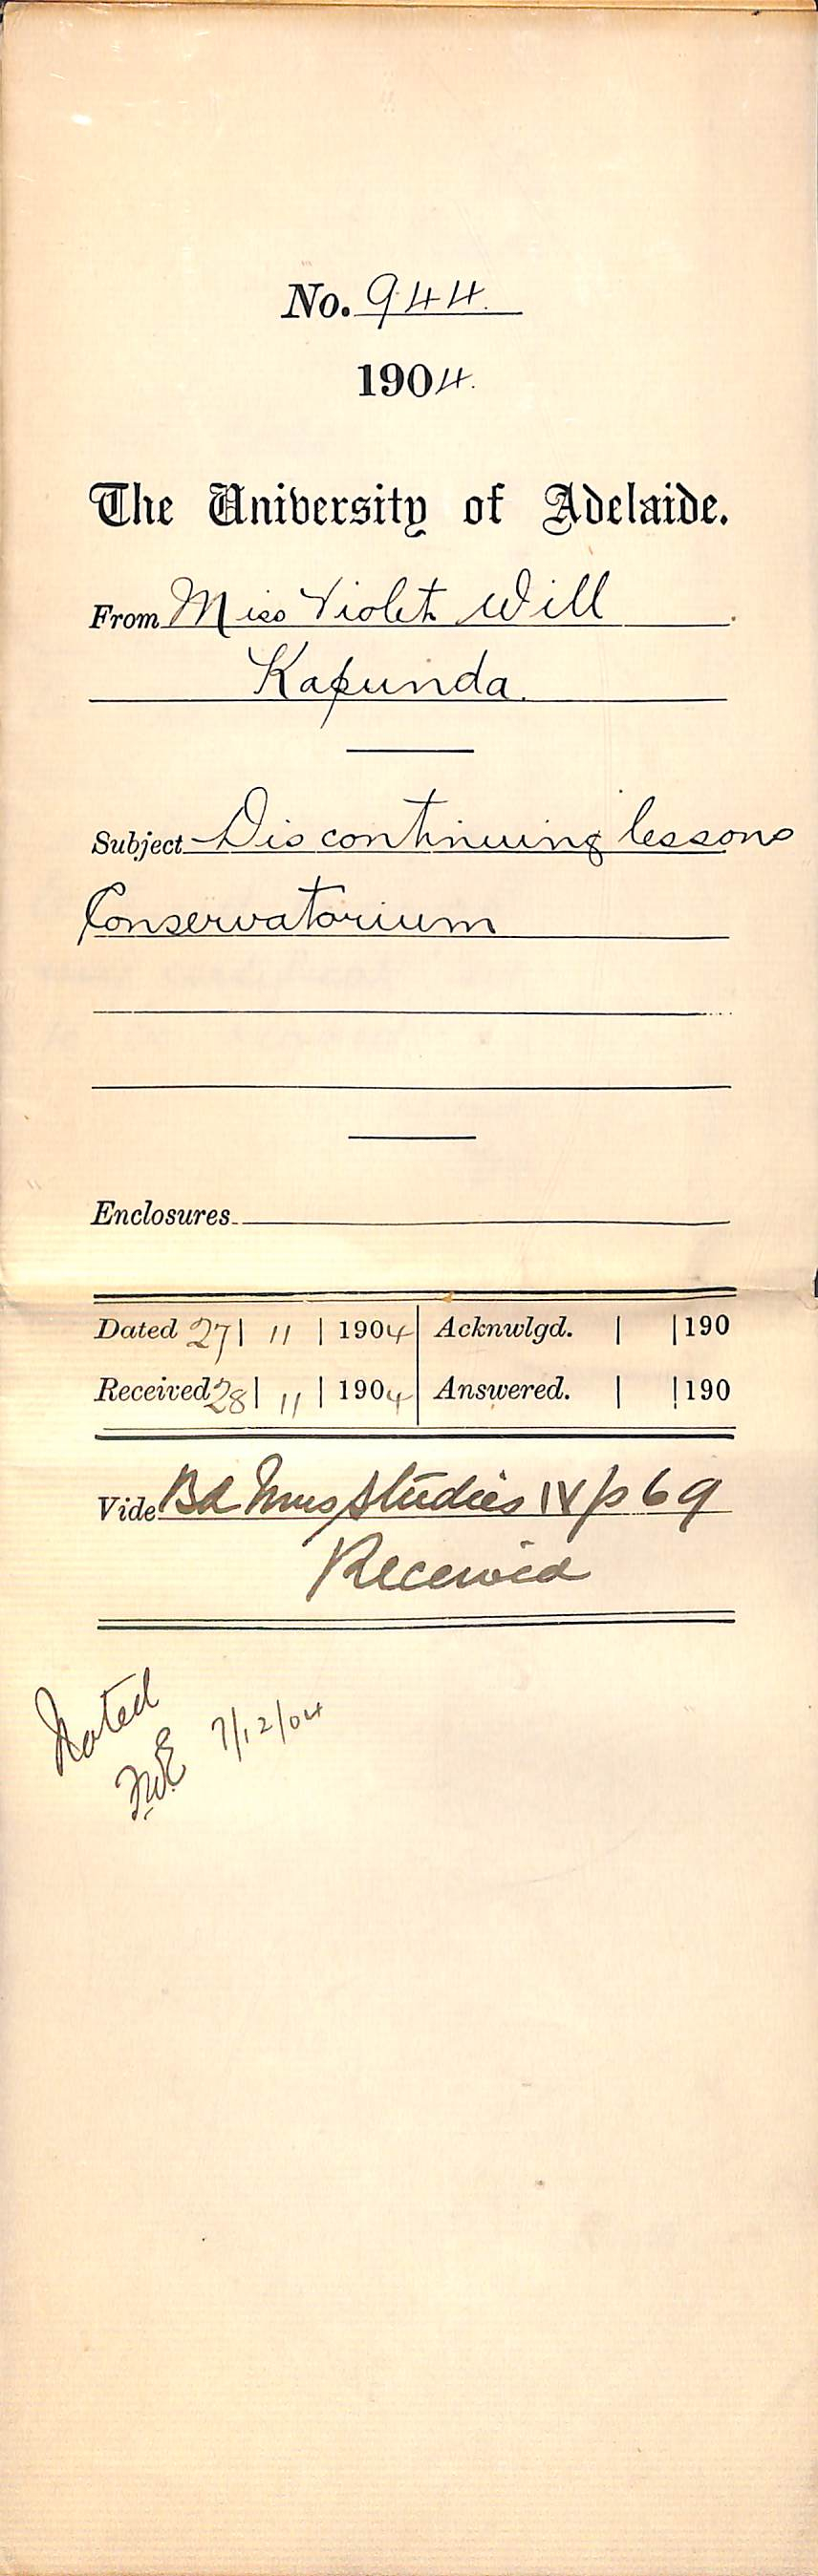 No. 944.
1904.
The University of Adelaide.
From Miss Violet Will
Kapunda.
Subject Discontinuing lessons
Conservatorium
Enclosures
Dated 27 | 11 | 1904 | Acknwlgd. | | 190
Received 28 | 11 | 1904 | Answered. | | 190
Vide Bd Mus Studies IV p 69
Received
Noted
7/12/04